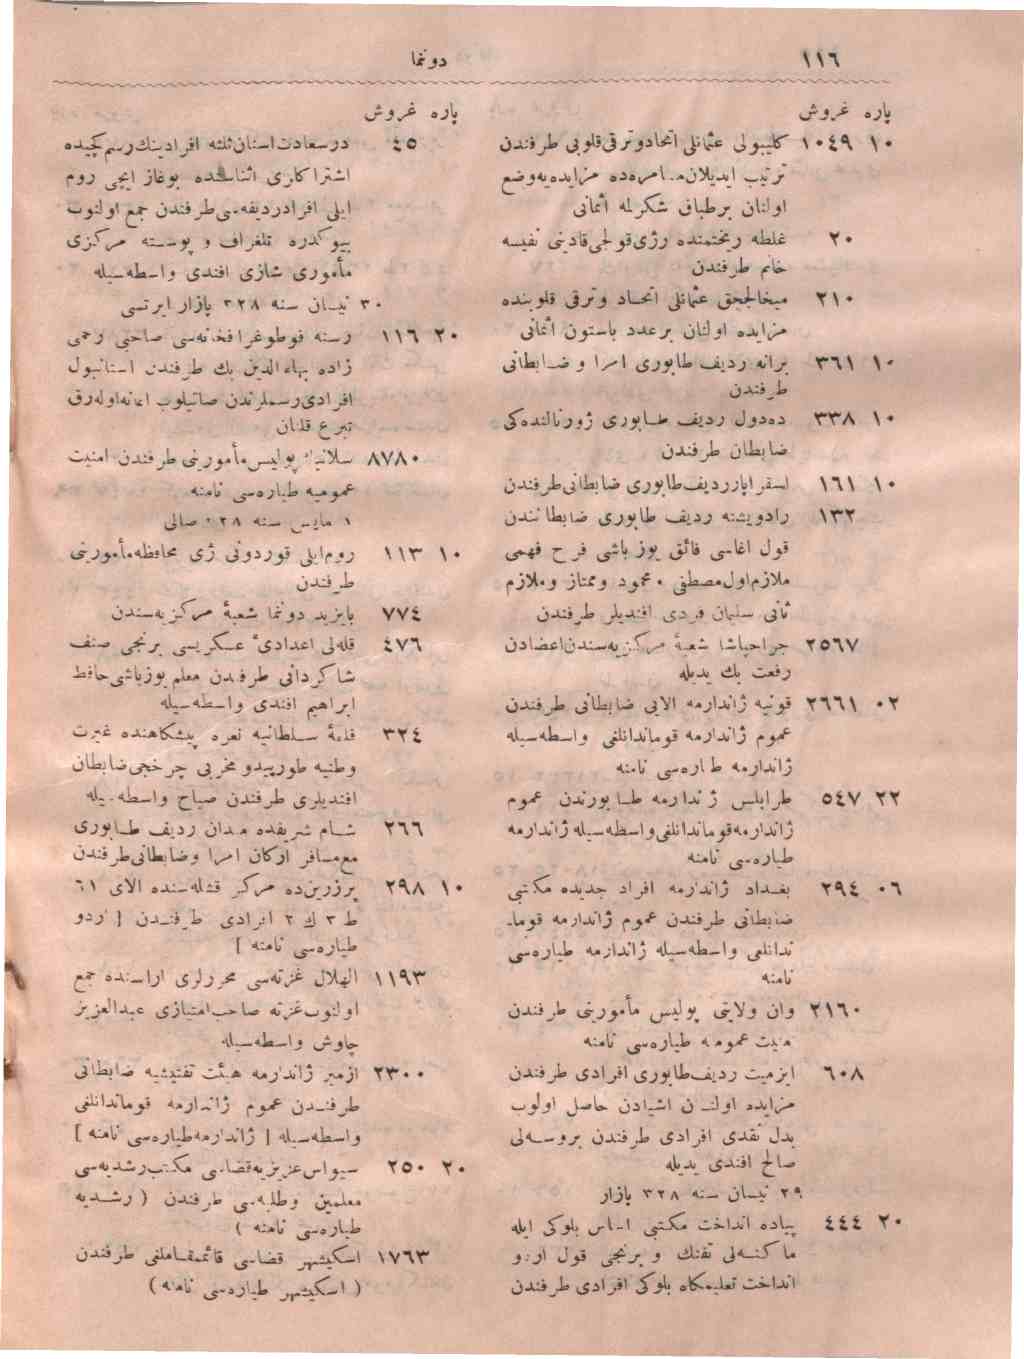 ١١٦
دوننما
پاره غروش
١٠ ١٠٤٩ كليبولى عثمانلى اتحادوترقى قلوبى طرفندن
ترتيب ايديلان مسامرەده مزايده‌يه‌وضع
اولنان برطباق شكرلمه اثمانى
٢٠ غلطه ريختمنده رژى قولجى قادينى نفيسه
خانم طرفندن
٢١٠ ميخاليجق عثمانلى اتحاد وترقى قلوبنده
مزايده اولنان برعدد باستون اثمانى
١٠ ٣٦١ برانه رديف طابورى امرا و ضابطانى
طرفندن
١٠ ٣٣٨ ده‌دول رديف طابورى ژورنالنده‌كى
ضابطان طرفندن
١٠ ١٦١ اسفراپازرديف‌طابورى ضابطانى‌طرفندن
١٣٢ رادويشته رديف طابورى ضابطانندن
قول اغاسى فائق يوز باشى فرح فهمى
ملازم‌اول‌مصطفى ، محمود وممتاز وملازم
ثانى سليمان فردى افنديلر طرفندن
٢٥٦٧ جراحپاشا شعبهٔ مركزيه‌سندن‌اعضادن
رفعت بك يديله
٠٢ ٢٦٦١ قونيه ژاندارمه الايى ضابطانى طرفندن
عموم ژاندارمه قوماندانلغى واسطه‌سيله
ژاندارمه طياره‌سى نامنه
٢٢ ٥٤٧ طرابلس ژاندارمه طابورندن عموم
ژاندارمه‌قوماندانلغى‌واسطه‌سيله ژاندارمه
طياره‌سى نامنه
٠٦ ٢٩٤ بغداد ژاندارمه افراد جديده مكتبى
ضابطانى طرفندن عموم ژاندارمه قوما-
ندانلغى واسطه‌سيله ژاندارمه طياره‌سى
نامنه
٢١٦٠ وان ولايتى پوليس مأمورينى طرفندن
امنيت عموميه طياره‌سى نامنه
٦٠٨ ايزميت رديف‌طابورى افرادى طرفندن
مزايده اولنان اشيادن حاصل اولوب
بدل نقدى افرادى طرفندن بروسه‌لى
صالح افندى يديله
٢٩ نيسان سنه ٣٢٨ بازار
٢٠ ٤٤٤ پياده انداخت مكتبى اساس بلوكى ايله
ماكنه‌لى تفنك و برنجى قول اردو
انداخت تعليمكاه بلوكى افرادى طرفندن
پاره غروش
٤٥ درسعادت‌استان‌ثلثه افرادينك‌رسم‌كچيده
اشتراكلرى اثناسنده بوغاز ايچى روم
ايلى افرادرديفه‌سى‌طرفندن جمع اولنوب
بيوكدره تلغراف و پوسته مركزى
مأمورى شازى افندى واسطه‌سيله
٣٠ نيسان سنه ٣٢٨ بازار ايرتسى
٢٠ ١١٦ رسنه فوطوغرافخانه‌سى صاحبى رحمى
زاده بهاءالدين بك طرفندن استانبول
افرادى‌رسملرندن صاتيلوب اعانه‌اوله‌رق
تبرع قلنان
٨٧٨٠ سلانيك پوليس‌مأمورينى طرفندن امنيت
عموميه طياره‌سى نامنه
١ مايس سنه ٣٢٨ صالى
١٠ ١١٣ روم‌ايلى قوردونى ژى محافظه‌مأمورينى
طرفندن
٧٧٤ بايزيد دوننما شعبهٔ مركزيه‌سندن
٤٧٦ قله‌لى اعدادئ عسكريسى برنجى صنف
شاكردانى طرفندن معلم يوزباشى‌حافظ
ابراهيم افندى واسطه‌سيله
٣٢٤ قلعهٔ سلطانيه نعره پيشكاهنده غيرت
وطنيه طورپيدو مخربى چرخجى‌ضابطان
افنديلرى طرفندن صباح واسطه‌سيله
٢٦٦ شام شريفده ميدان رديف طابورى
مع‌مسافر اركان امرا وضابطانى‌طرفندن
١٠ ٢٩٨ پرزرين‌ده مركز قشله‌سنده الاى ٦١
ط ٣ ك ٢ افرادى طرفندن [ اردو
طياره‌سى نامنه ]
١١٩٣ الهلال غزته‌سى محررلرى اراسنده جمع
اولنوب‌غزته صاحب‌امتيازى عبدالعزيز
چاوش واسطه‌سيله
٢٣٠٠ ازمير ژاندارمه هيئت تفتيشيه ضابطانى
طرفندن عموم ژاندارمه قوماندانلغى
واسطه‌سيله [ ژاندارمه‌طياره‌سى نامنه ]
٢٠ ٢٥٠ سيواس‌عزيزيه‌قضاسى مكتب‌رشديه‌سى
معلمين وطلبه‌سى طرفندن ( رشديه
طياره‌سى نامنه )
١٧٦٣ اسكيشهر قضاسى قائممقاملغى طرفندن
( اسكيشهر طياره‌سى نامنه )